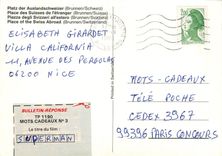 Platz der Auslandschweizer (Brunnen/Schweiz)
Place des Suisses de l'étranger (Brunnen/Suisse)
Piazza degli Svizzeri all'estero (Brunnen/Svizzera)
Place of the Swiss Abroad (Brunnen/Switzerland)
ELISABETH GIRARDET
VILLA CALIFORNIA
11, AVENUE DES PERGOLAS
06200 NICE
BULLETIN RÉPONSE
TF 1190
MOTS CADEAUX N° 3
Le titre du film :
SUPERMAN
MOTS-CADEAUX
TÉLÉ POCHE
CEDEX 3967
99396 PARIS CONCOURS